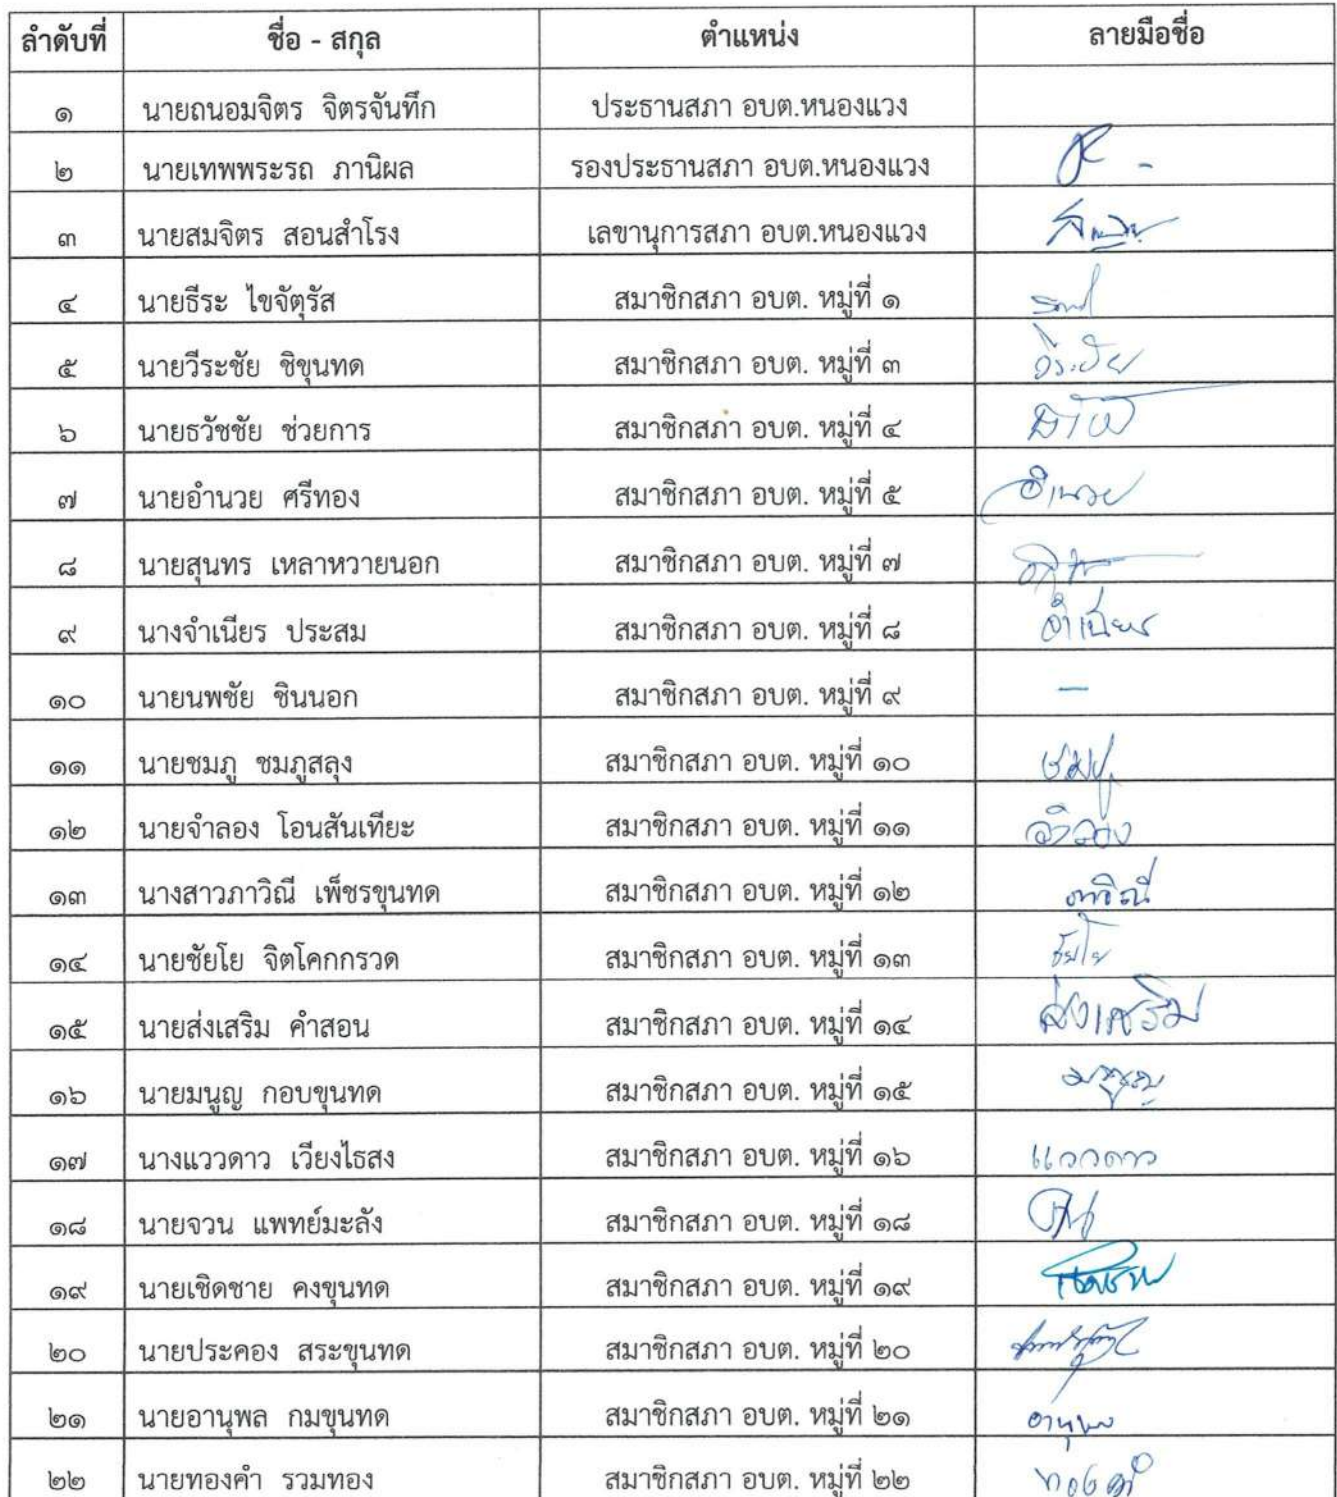 ลำดับที่ ชื่อ - สกุล ตำแหน่ง ลายมือชื่อ
๑ นายถนอมจิตร จิตรจันทึก ประธานสภา อบต.หนองแวง
๒ นายเทพพระรถ ภานิผล รองประธานสภา อบต.หนองแวง
๓ นายสมจิตร สอนสำโรง เลขานุการสภา อบต.หนองแวง
๔ นายธีระ ไขจัตุรัส สมาชิกสภา อบต. หมู่ที่ ๑
๕ นายวีระชัย ชิขุนทด สมาชิกสภา อบต. หมู่ที่ ๓ วีระชัย
๖ นายธวัชชัย ช่วยการ สมาชิกสภา อบต. หมู่ที่ ๔
๗ นายอำนวย ศรีทอง สมาชิกสภา อบต. หมู่ที่ ๕ อำนวย
๘ นายสุนทร เหลาหวายนอก สมาชิกสภา อบต. หมู่ที่ ๗
๙ นางจำเนียร ประสม สมาชิกสภา อบต. หมู่ที่ ๘ จำเนียร
๑๐ นายนพชัย ชินนอก สมาชิกสภา อบต. หมู่ที่ ๙ -
๑๑ นายชมภู ชมภูสลุง สมาชิกสภา อบต. หมู่ที่ ๑๐ ชมภู
๑๒ นายจำลอง โอนสันเทียะ สมาชิกสภา อบต. หมู่ที่ ๑๑ จำลอง
๑๓ นางสาวภาวิณี เพ็ชรขุนทด สมาชิกสภา อบต. หมู่ที่ ๑๒ ภาวิณี
๑๔ นายชัยโย จิตโคกกรวด สมาชิกสภา อบต. หมู่ที่ ๑๓ ชัยโย
๑๕ นายส่งเสริม คำสอน สมาชิกสภา อบต. หมู่ที่ ๑๔ ส่งเสริม
๑๖ นายมนูญ กอบขุนทด สมาชิกสภา อบต. หมู่ที่ ๑๕ มนูญ
๑๗ นางแววดาว เวียงไธสง สมาชิกสภา อบต. หมู่ที่ ๑๖ แววดาว
๑๘ นายจวน แพทย์มะลัง สมาชิกสภา อบต. หมู่ที่ ๑๘
๑๙ นายเชิดชาย คงขุนทด สมาชิกสภา อบต. หมู่ที่ ๑๙
๒๐ นายประคอง สระขุนทด สมาชิกสภา อบต. หมู่ที่ ๒๐
๒๑ นายอานุพล กมขุนทด สมาชิกสภา อบต. หมู่ที่ ๒๑ อานุพล
๒๒ นายทองคำ รวมทอง สมาชิกสภา อบต. หมู่ที่ ๒๒ ทองคำ